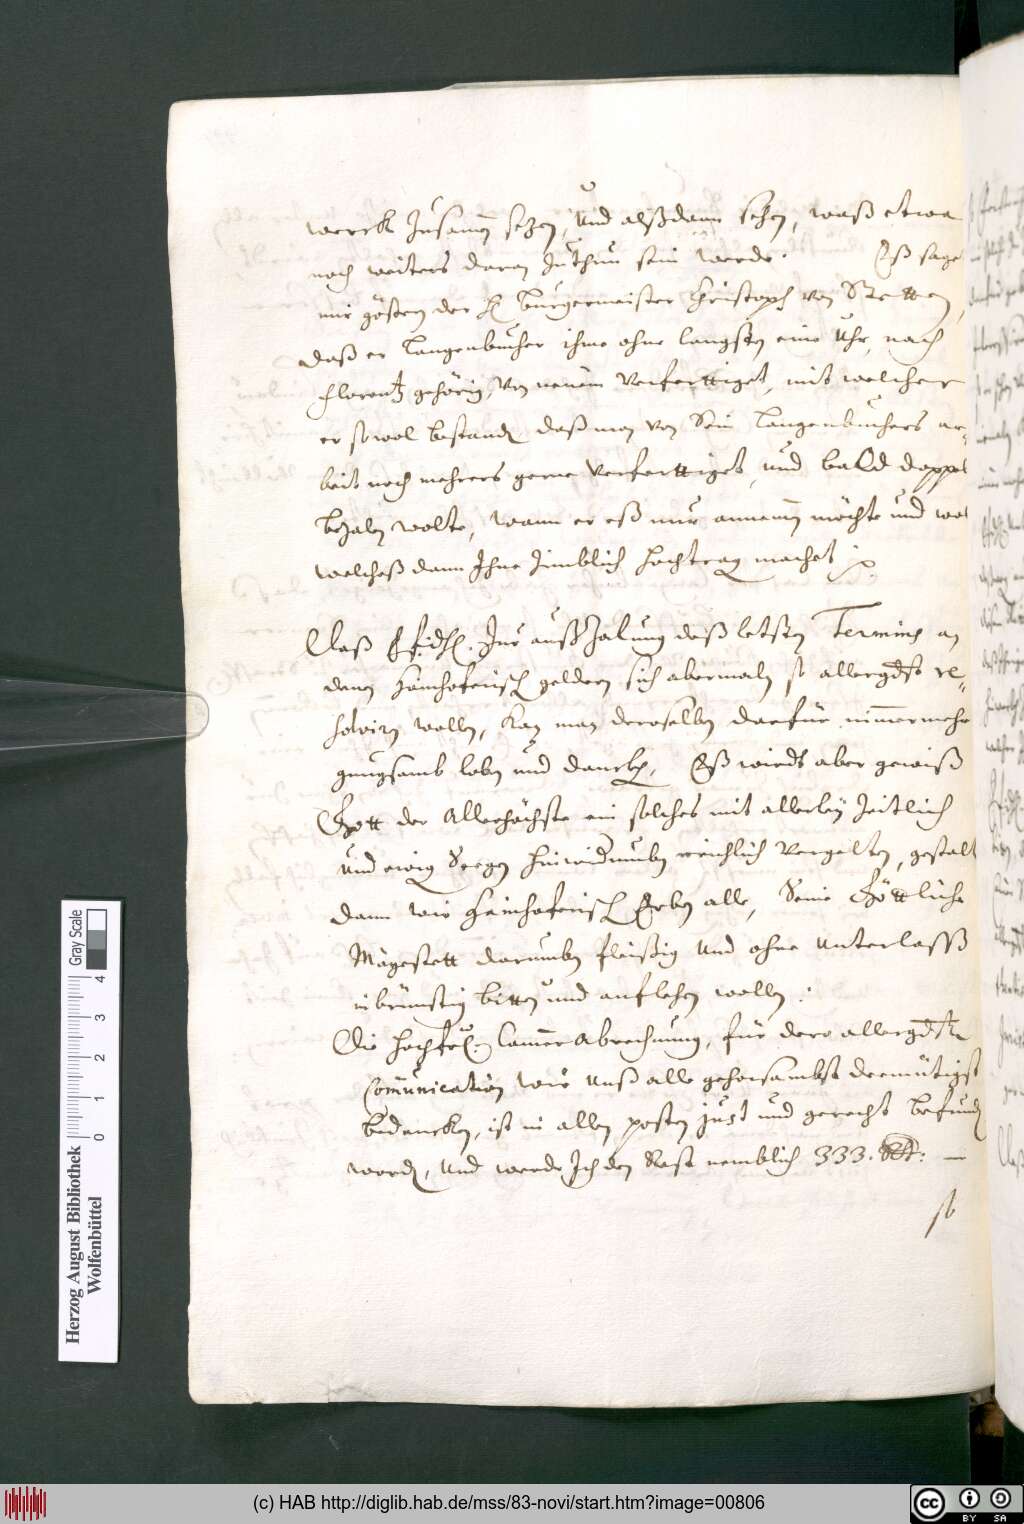 werck Zusamen sezen, Und alßdann sehen, waß etwa
noch weiters daran Zuthun sein werde. Eß sagt
mir gösten der H Burgermeister Christoph von Stetten,
daß er Langenbucher ihme ohne langsten eine Uhr, nach
Florentz gehörig, von neuem Verferttiget, mit welcher
er so wol bestand, daß man von Sein Langenbuchers ar-
beit noch mehrers gerne Verferttiget, und baLd doppel
bezalen wolte, wann er eß nur annemen möchte und wol
welcheß dann Ihne Zimblich hochtrag machet
Daß E. f. Zur außZalung deß letsten Termins an
denen Hainhoferisch geldern sich abermaln so allergdst re-
solvirn wollen, Kan man deroselben darfür nimmermehr
gnugsamb loben und dancken, Eß wirdt aber gewiß
Gott der Allerhöchste ein solches mit allerley Zeitlich
und ewig Seegen hinwiderumben reichlich Vergelten, gestalt
dann wir Hainhoferisch Erben alle, Seine Göttliche
Mäyestett darumben fleißig Und ohne Unterlaß
inbrünstig bitten und anflehen wollen:
Die hochfrl: Camer Abrechnung, für dero allergdste
Comunication wir Unß alle gehorsambst demütigst
bedancken, ist in allen posten just und gerecht befund
word, Und werde Ich den Rest nemblich 333. —
so
Herzog August Bibliothek
Wolfenbüttel
Gray Scale
0 1 2 3 4
(c) HAB http://diglib.hab.de/mss/83-novi/start.htm?image=00806
cc BY SA